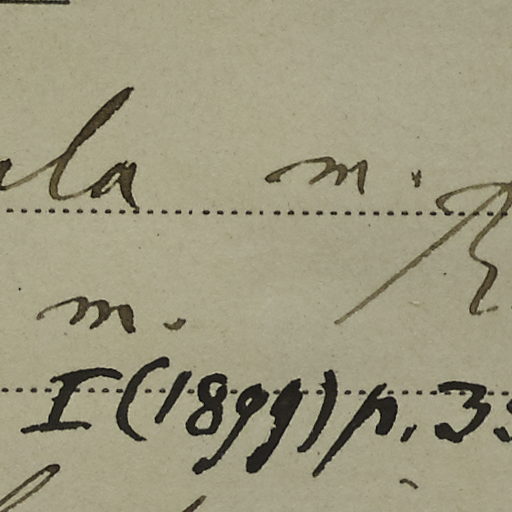 la m.
m.
I (1899) p. 3